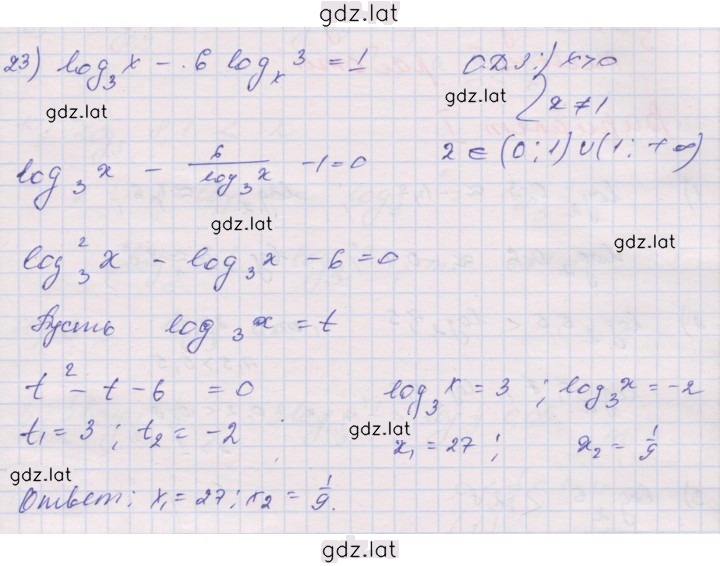 gdz.lat
23) log₃x - 6 logₓ3 = 1 О.Д.З.:) x>0
gdz.lat gdz.lat x ≠ 1
log₃x - 6/log₃x - 1 = 0 x ∈ (0;1) ∪ (1; +∞)
gdz.lat gdz.lat
log₃²x - log₃x - 6 = 0
Пусть log₃x = t
t² - t - 6 = 0 log₃x = 3 ; log₃x = -2
t₁ = 3 ; t₂ = -2 gdz.lat x₁ = 27 ; x₂ = 1/9
gdz.lat
Ответ: x₁ = 27; x₂ = 1/9.
gdz.lat